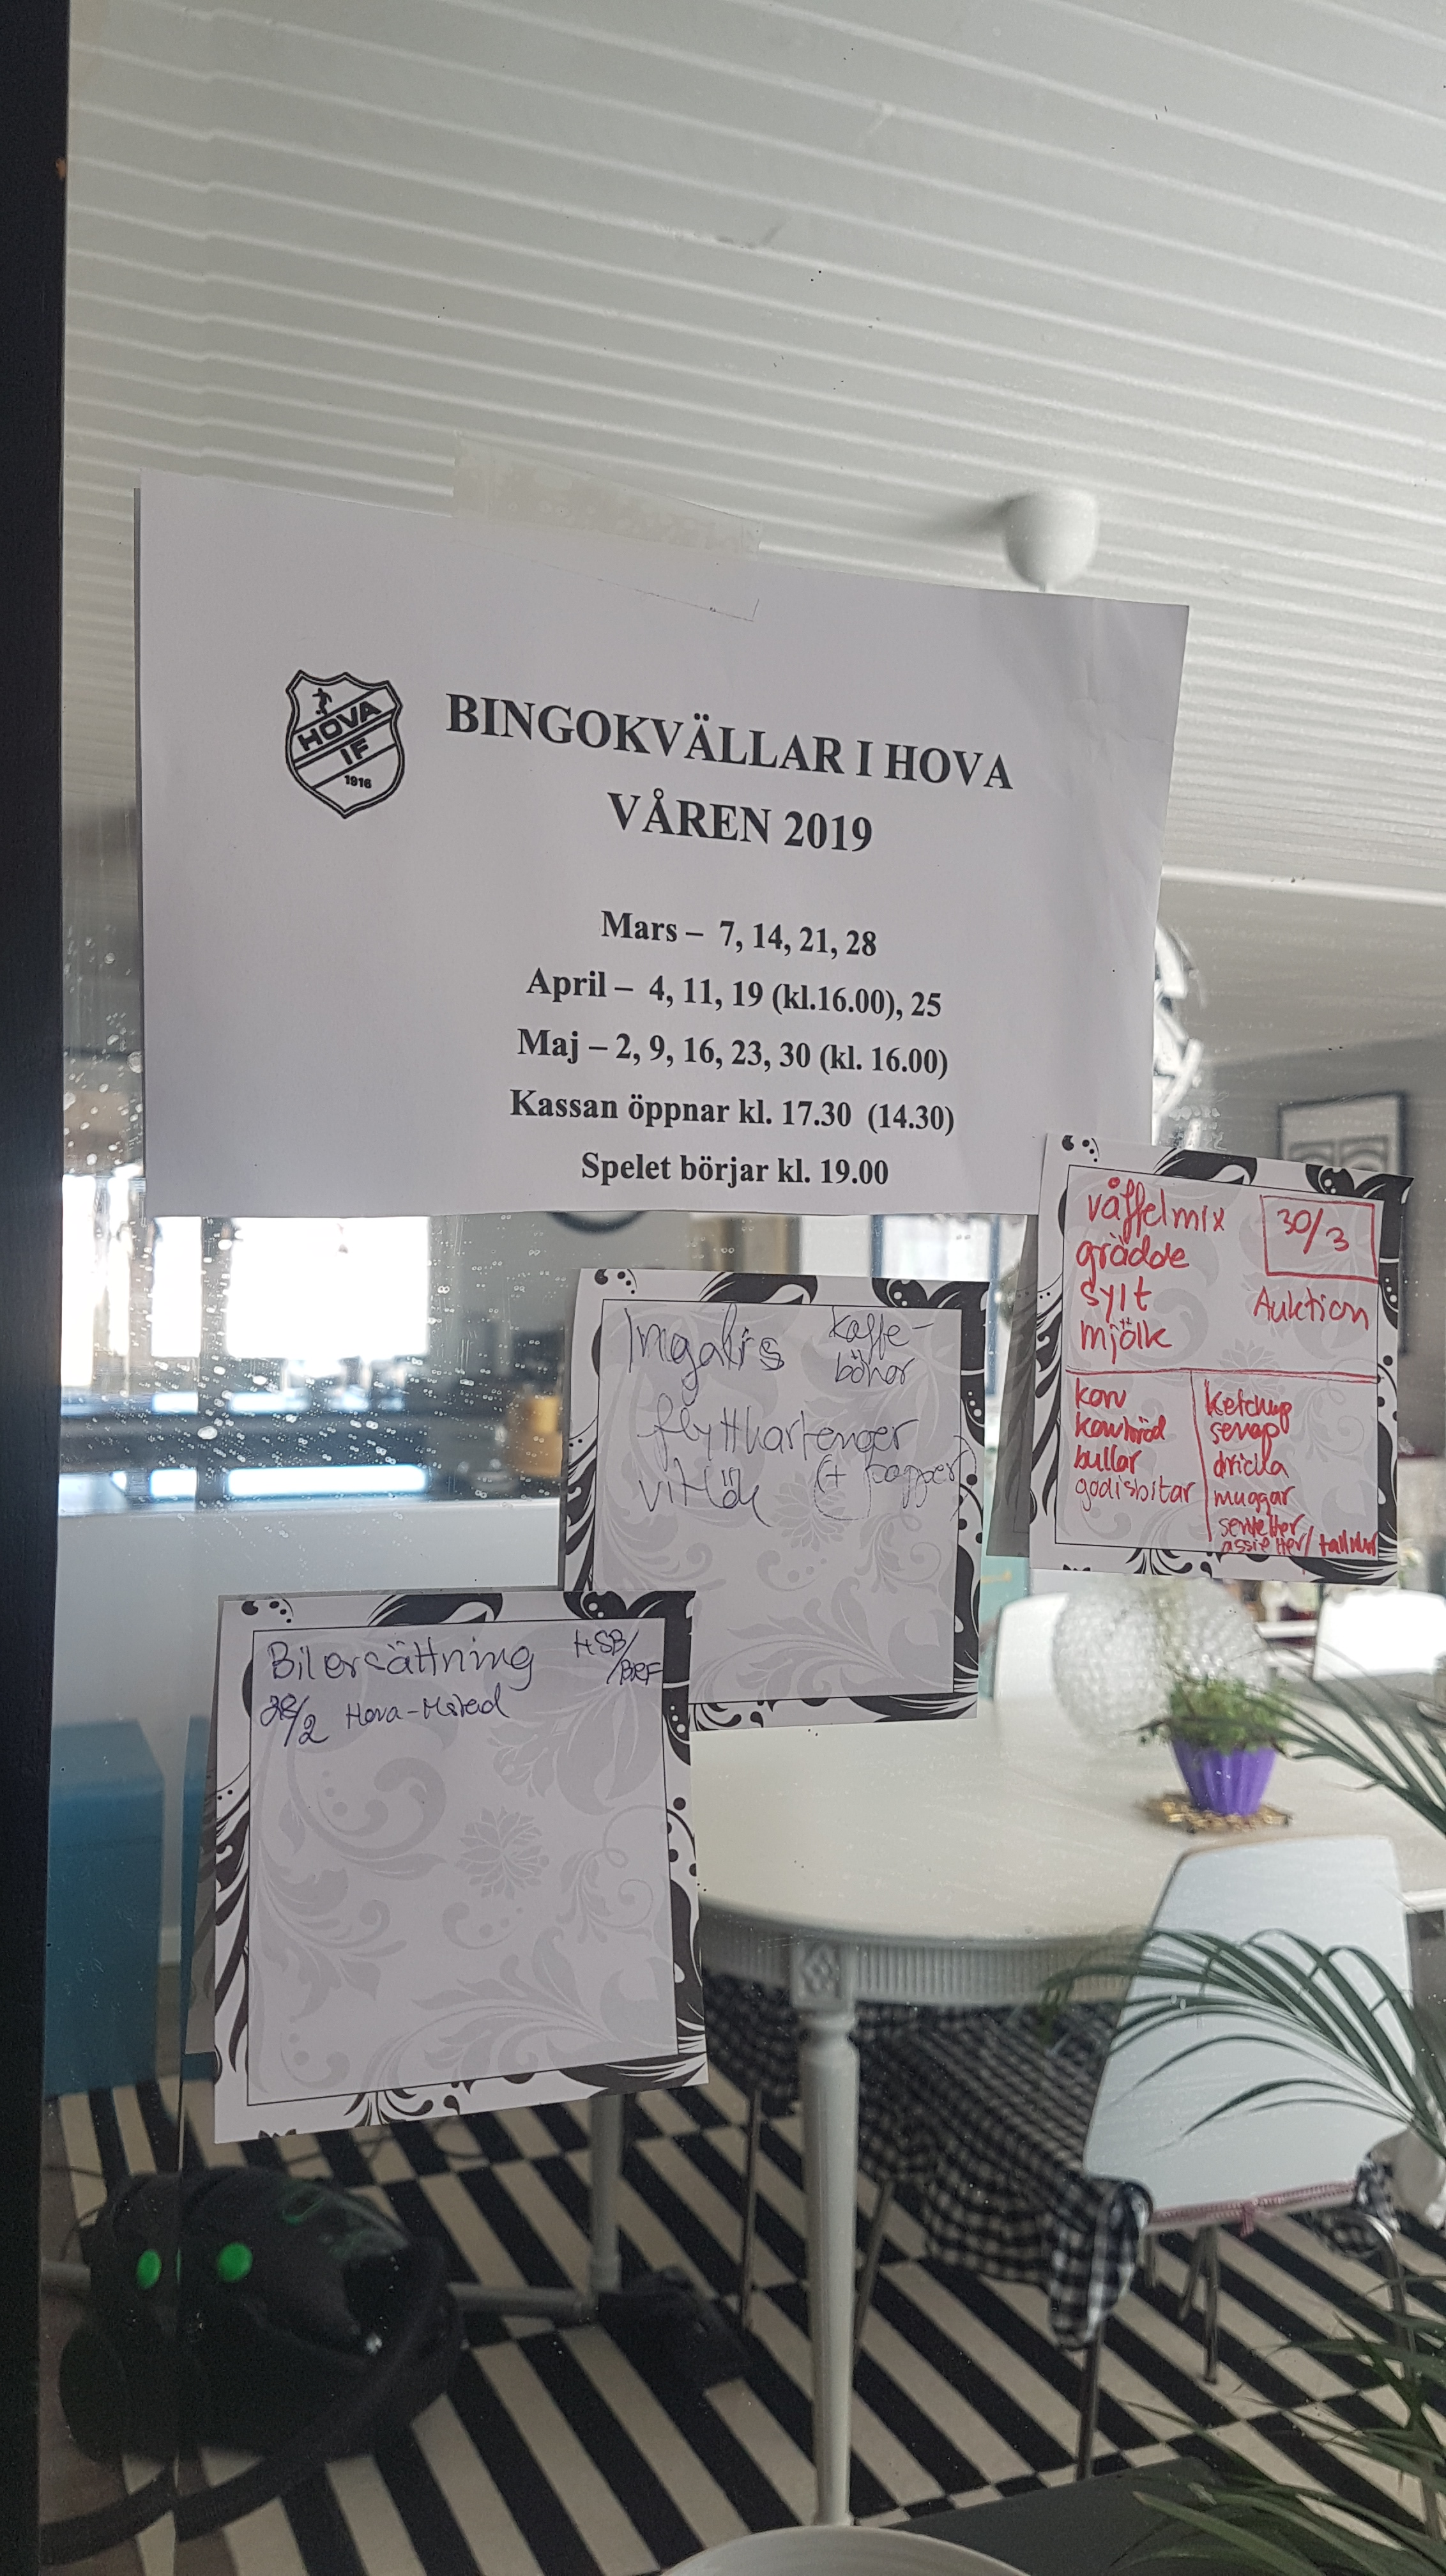 HOVA
IF
1916
BINGOKVÄLLAR I HOVA
VÅREN 2019
Mars – 7, 14, 21, 28
April – 4, 11, 19 (kl.16.00), 25
Maj – 2, 9, 16, 23, 30 (kl. 16.00)
Kassan öppnar kl. 17.30 (14.30)
Spelet börjar kl. 19.00
våffelmix
grädde
sylt
mjölk
30/3
Auktion
korv
korvbröd
bullar
godisbitar
Ketchup
senap
dricka
muggar
servetter
assietter/tallrikar
Ingalis
kaffe-
bönor
flyttkartonger
vitlök (+ papper)
Bilersättning HSB/
BRF
28/2 Hova-Mstad